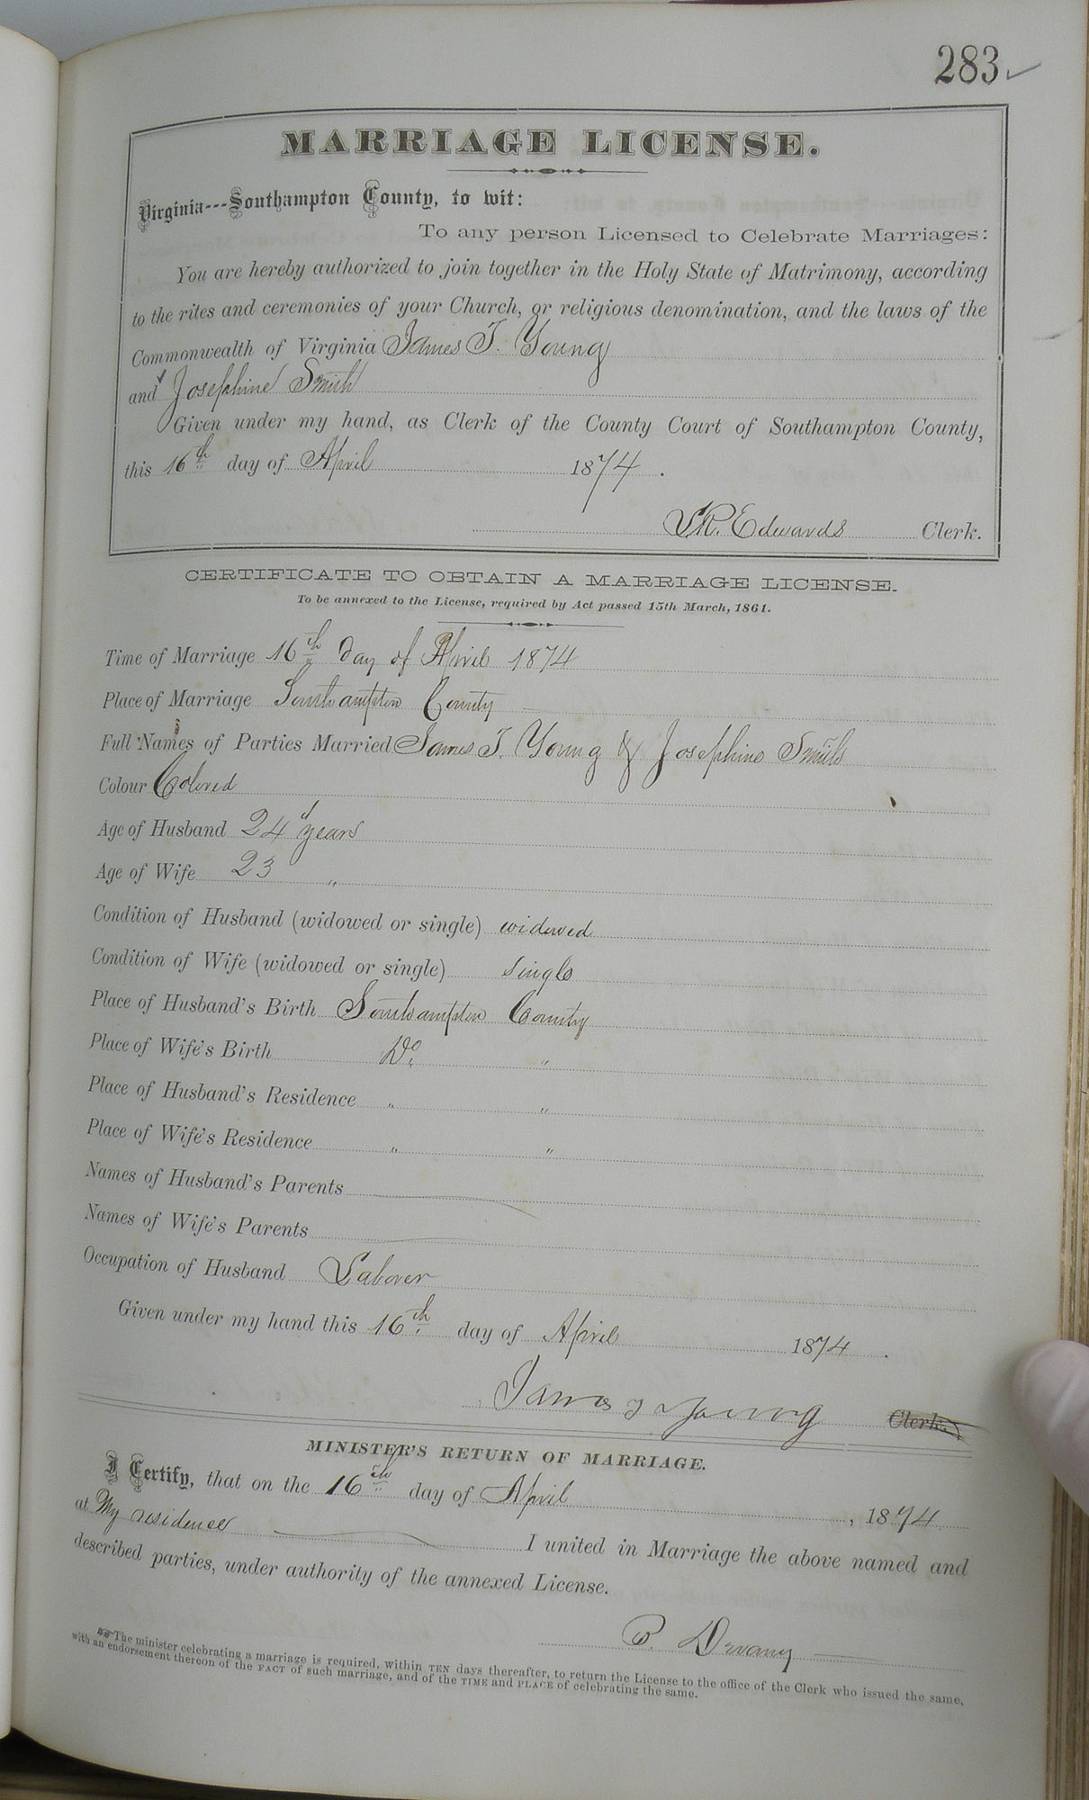 283 ✓
MARRIAGE LICENSE.
Virginia---Southampton County, to wit:
To any person Licensed to Celebrate Marriages:
You are hereby authorized to join together in the Holy State of Matrimony, according
to the rites and ceremonies of your Church, or religious denomination, and the laws of the
Commonwealth of Virginia James T. Young
and Josephine Smith
Given under my hand, as Clerk of the County Court of Southampton County,
this 16th day of April 1874.
Edwards Clerk.
CERTIFICATE TO OBTAIN A MARRIAGE LICENSE.
To be annexed to the License, required by Act passed 15th March, 1861.
Time of Marriage 16th day of April 1874
Place of Marriage Southampton County
Full Names of Parties Married James T. Young & Josephine Smith
Colour Colored
Age of Husband 24 years
Age of Wife 23 "
Condition of Husband (widowed or single) widowed
Condition of Wife (widowed or single) single
Place of Husband's Birth Southampton County
Place of Wife's Birth Do "
Place of Husband's Residence " "
Place of Wife's Residence " "
Names of Husband's Parents
Names of Wife's Parents
Occupation of Husband Laborer
Given under my hand this 16th day of April 1874.
James T Young Clerk.
MINISTER'S RETURN OF MARRIAGE.
I Certify, that on the 16th day of April, 1874
at My residence I united in Marriage the above named and
described parties, under authority of the annexed License.
The minister celebrating a marriage is required, within TEN days thereafter, to return the License to the office of the Clerk who issued the same,
with an endorsement thereon of the FACT of such marriage, and of the TIME and PLACE of celebrating the same.